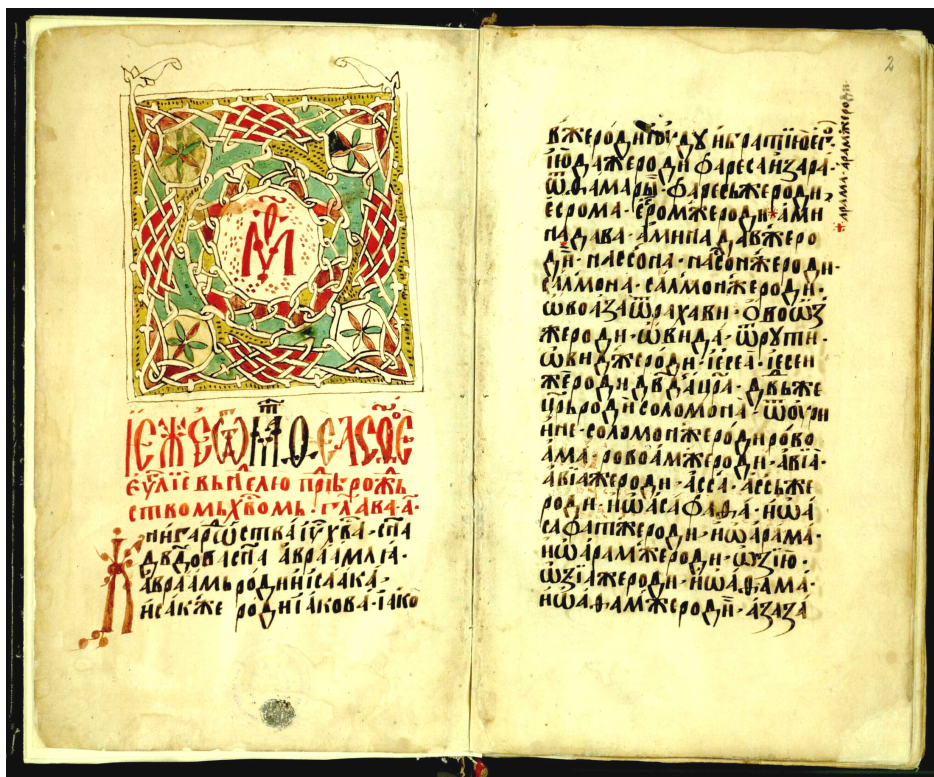 І҆Е҆ЖЕ Ѿ МАѲ. ЕѴ҃А СТ҃ОЕ
еѵⷢ҇лїе въ нⷣе҇лю прѣⷣ рожⷣь
ствомъ хв҃омь · глава · а҃ ·
Книга рѡⷣства і҆ѵ҃ хв҃а · сн҃а
дв҃дова сн҃а а҆враа́млꙗ ·
а҆враа́мь роди́ и҆саака ·
и҆са́кже роди і҆а́кова · і҆а́ко
2
вже роди і҆ю́ду и҆ братїю е҆гⷪ҇ ·
і҆ю́да же роди фареса и҆ зара ·
ѿ ѳамары · фаресьже роди
е҆срома · е҆сро́мже роди · ами
надава · аминада́вже ро
ди · наасона · наасо́нже роди ·
салмона · салмо́нже роди ·
ѡвоаза ѿ рахави · ѻвоѡз
жероди · ѡвида · ѿ рути ·
ѡви́дже роди · і҆ессеа · і҆ессеи
же роди дв҃да цр҃ꙗ · дв҃ьже
цр҃ь роди соломона · ѿ оури
ине · соломо́нже роди рово
ама · ровоа́мже роди · а҆вїа ·
а҆вїа́же роди · асса · ассьже
роди · и҆ѡсафата · и҆ѡса
сафатже роди · и҆ѡ́рама ·
и҆ѡ́рамже роди · ѡзїю ·
ѡзїа́же роди · и҆ѡа́ѳама ·
и҆ѡа́ѳамже роди · а҆заза
арама · арамже роди